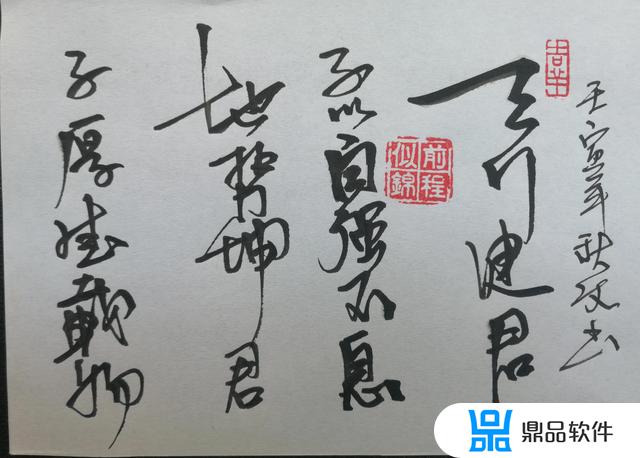 壬寅年秋文书
天行健君
子以自强不息
地势坤君
子厚德載物
前程似錦
鼎品软件